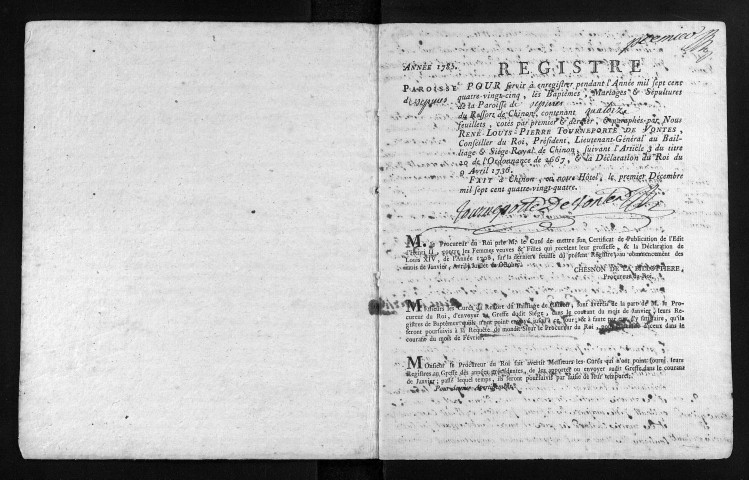 premier
ANNÉE 1785. REGISTRE
PAROISSE POUR servir à enregistrer pendant l'Année mil sept cent
quatre-vingt-cinq, les Baptêmes, Mariages & Sépultures
de la Paroisse de
du Ressort de Chinon, contenant quatorze
feuillets, cotés par premier & dernier, & paraphés par Nous
RENÉ-LOUIS-PIERRE TOURNEPORTE DE VONTES,
Conseiller du Roi, Président, Lieutenant-Général au Bail-
liage & Siège-Royal de Chinon, suivant l'Article 3 du titre
20 de l'Ordonnance de 1667, & la Déclaration du Roi du
9 Avril 1736.
FAIT à Chinon, en notre Hôtel, le premier Décembre
mil sept cent quatre-vingt-quatre.
Tourneporte De Vontes
M. le Procureur du Roi prie Mr. le Curé de mettre son Certificat de Publication de l'Edit
d'Henri II, contre les Femmes veuves & Filles qui recelent leur grossesse, & la Déclaration de
Louis XIV, de l'Année 1708, sur la derniere feuille du présent Registre, au commencement des
mois de Janvier, Avril, Juillet & Octobre.
CHESNON DE LA
Procureur du Roi.
Messieurs les Curés du Ressort du Bailliage de Chinon, sont avertis de la part de M. le Pro-
cureur du Roi, d'envoyer au Greffe dudit Siége, dans le courant du mois de Janvier, leurs Re-
gistres de Baptêmes qu'ils n'ont point envoyé jusqu'à ce jour, & à faute par eux d'y satisfaire, qu'ils
seront poursuivis à la Requête de mondit Sieur le Procureur du Roi, d'iceux dans le
courant du mois de Février.
Monsieur le Procureur du Roi fait avertir Messieurs les Curés qui n'ont point fourni leurs
Registres au Greffe des années précédentes, de les apporter ou envoyer audit Greffe dans le courant
de Janvier; passé lequel temps, ils seront poursuivis par saisie de leur temporel.